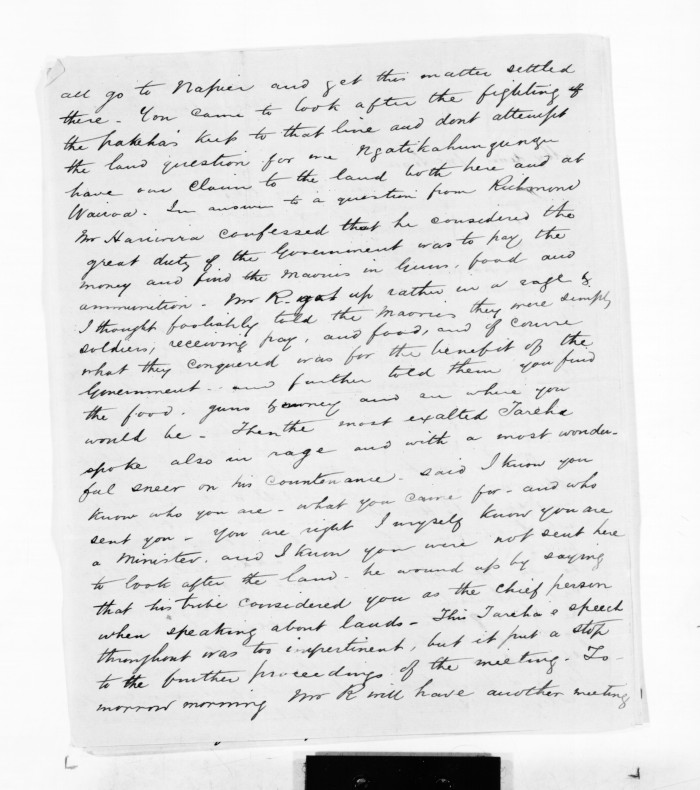 all go to Napier and get this matter settled
there - You came to look after the fighting of
the pakehas keep to that line and dont attempt
the land question for we Ngatikahungungu
have our claim to the land both here and at
Wairoa. In answer to a question from Richmond
Mr Hariwira confessed that he considered the
great duty of the Government was to pay the
money and find the Maoris in Guns, food and
ammunition - Mr R. got up rather in a rage &
I thought foolishly told the Maories they were simply
soldiers, receiving pay, and food, and of course
what they conquered was for the benefit of the
Government - and further told them you find
the food, guns & money and see where you
would be - Then the most exalted Tareha
spoke also in rage and with a most wonder-
ful sneer on his countenance - said I know you
know who you are - what you came for - and who
sent you - You are right I myself know you are
a Minister, and I know you were not sent here
to look after the land - he wound up by saying
that his tribe considered you as the chief person
when speaking about lands - This Tareha's speech
throughout was too impertinent, but it put a stop
to the further proceedings of the meeting - To-
morrow morning Mr R will have another meeting